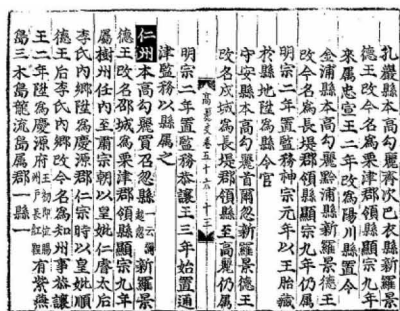 孔巖縣本高勾麗齊次巴衣縣新羅景
德王改今名爲栗津郡領縣顯宗九年
來屬忠宣王二年改爲陽川縣置令
金浦縣本高勾麗黔浦縣新羅景德王
改今名爲長堤郡領縣顯宗九年仍屬
明宗二年置監務神宗元年以王胎藏
於縣地陞爲縣令官
守安縣本高勾麗首爾忽新羅景德王
改名戍城爲長堤郡領縣至高麗仍屬
高麗史卷五十六 二十三
明宗二年置監務恭讓王三年始置通
津監務以縣屬之
仁州本高勾麗買召忽縣一云彌趨忽新羅景
德王改名邵城爲栗津郡領縣顯宗九年
屬樹州任內至肅宗朝以皇妣仁睿太后
李氏內鄉陞爲慶源郡仁宗時以皇妣順
德王后李氏內鄉改今名爲知州事恭讓
王二年陞爲慶源府 有紫燕
島三木島龍流島屬郡一縣一